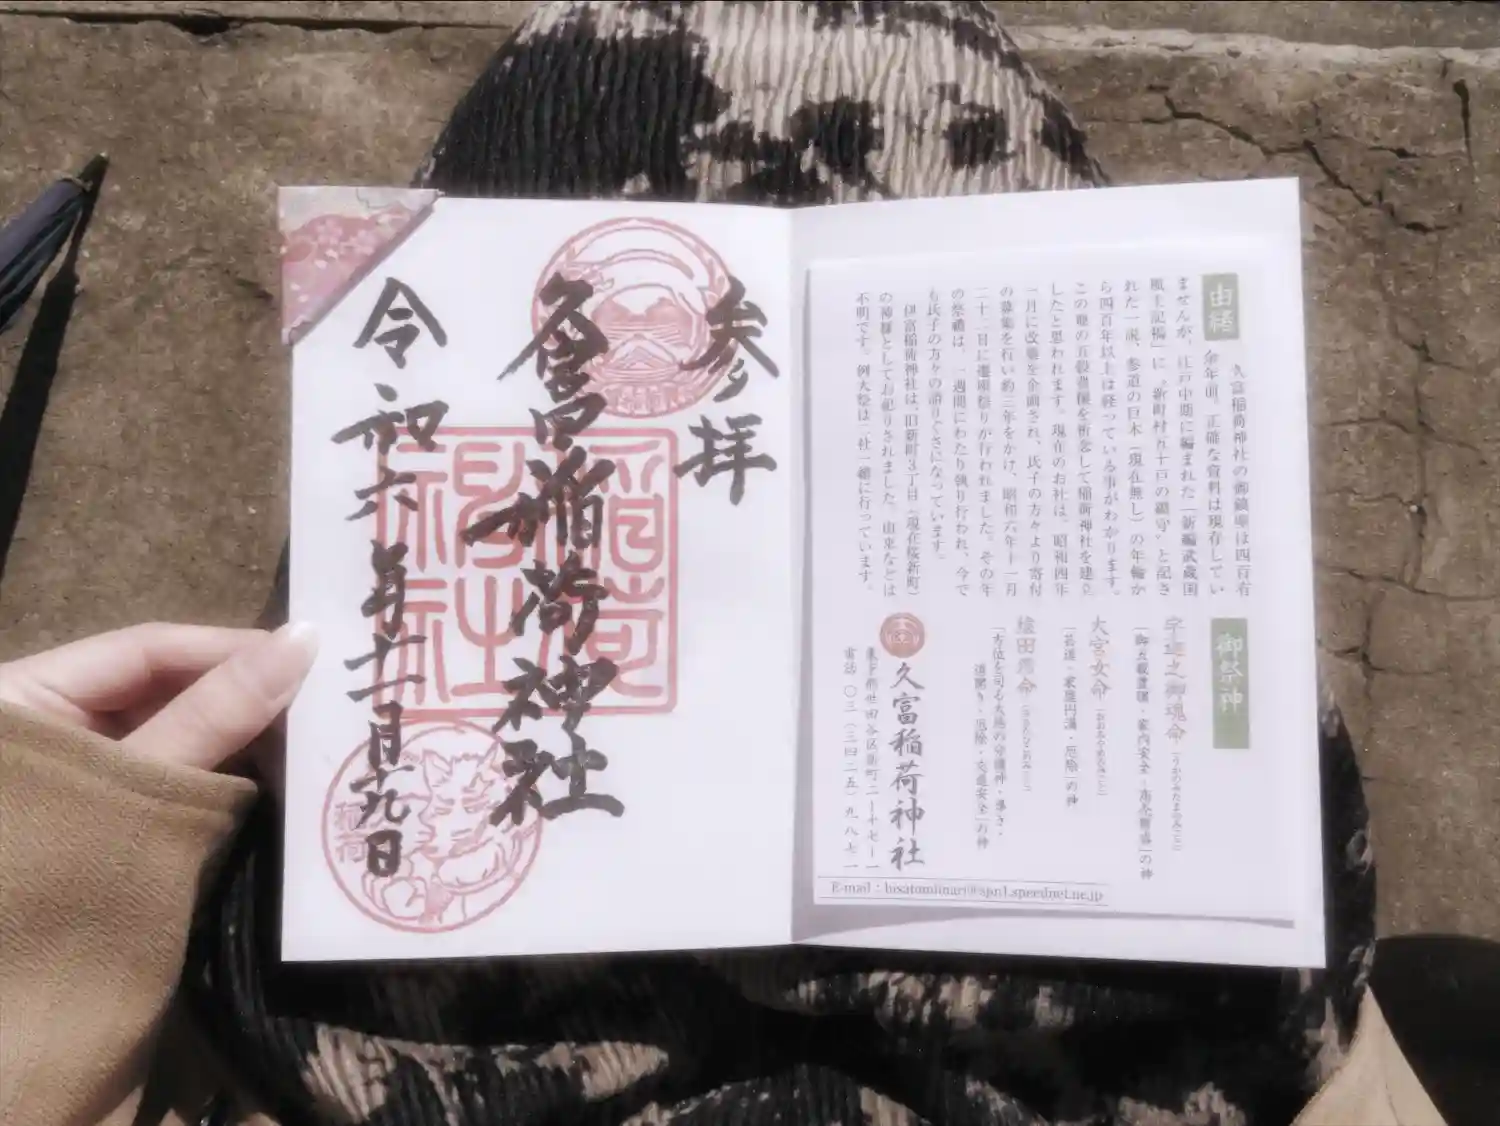 由緒
久富稲荷神社の御鎮座は四百有
余年前。正確な資料は現存してい
ませんが、江戸中期に編まれた「新編武蔵国
風土記稿」に「新町村五十戸の鎮守」と記さ
れた一説、参道の巨木（現在無し）の年輪か
ら四百年以上は経っている事がわかります。
この地の五穀豊穣を祈念して稲荷神社を建立
したと思われます。現在のお社は、昭和四年
一月に改築を企画され、氏子の方々より寄付
の募集を行い約三年をかけ、昭和六年十一月
二十二日に遷座祭りが行われました。その年
の祭禮は、一週間にわたり執り行われ、今で
も氏子の方々の語りぐさになっています。
伊富稲荷神社は、旧新町3丁目（現在桜新町）
の神様としてお祀りされました。由来などは
不明です。例大祭は二社一緒に行っています。
御祭神
宇迦之御魂命（うかのみたまのみこと）
「御五穀豊穣・家内安全・商売繁盛」の神
大宮女命（おおみやめのみこと）
「芸道・家庭円満・厄除」の神
猿田彦命（さるたひこのみこと）
「方位を司る太陽の守護神・導き・
道開き・厄除・交通安全」の神
久富稲荷神社
東京都世田谷区新町二ー十七ー一
電話 〇三（三四二五）九八七一
E-mail：hisatomiinari@apn1.speednet.ne.jp
参拝
久富稲荷神社
稲荷神社
令和六年十一月九日
稲荷